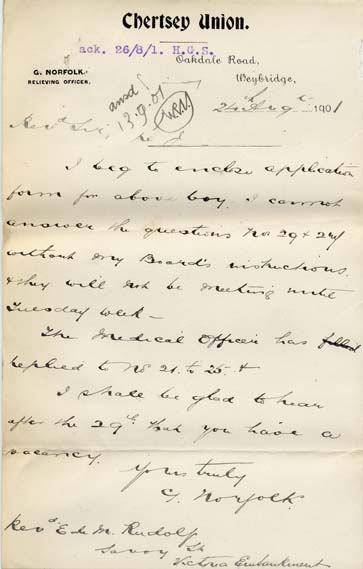 Chertsey Union.
ack. 26/8/1. H.G.S.
Oakdale Road,
G. NORFOLK.
RELIEVING OFFICER,
Weybridge,
ansd
13.9.01
W.R.V.
24th Augt 1901
Revd Sir,
re J
I beg to enclose application
form for above boy. I cannot
answer the questions Nos 29 &
without my Board's instructions.
& they will not be meeting until
Tuesday week –
The Medical Officer has
replied to No 21. to 25.
I shall be glad to hear
after the 29th that you have a
vacancy.
Yours truly
G. Norfolk.
Revd E de M. Rudolf
Savoy St
Victoria Embankment